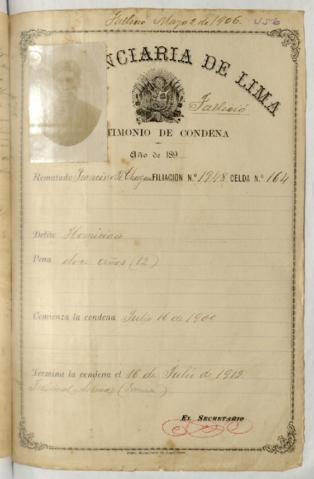 Falleció Mayo 2 de 1906. U56
NCIARIA DE LIMA
Falleció
TIMONIO DE CONDENA
Año de 189
Rematado Francisco FILIACIÓN N.º 1948 CELDA N.º 164
Delito Homicidio
Pena doce años (12)
Comienza la condena Julio 16 de 1900
Termina la condena el 16 de Julio de 1912
EL SECRETARIO